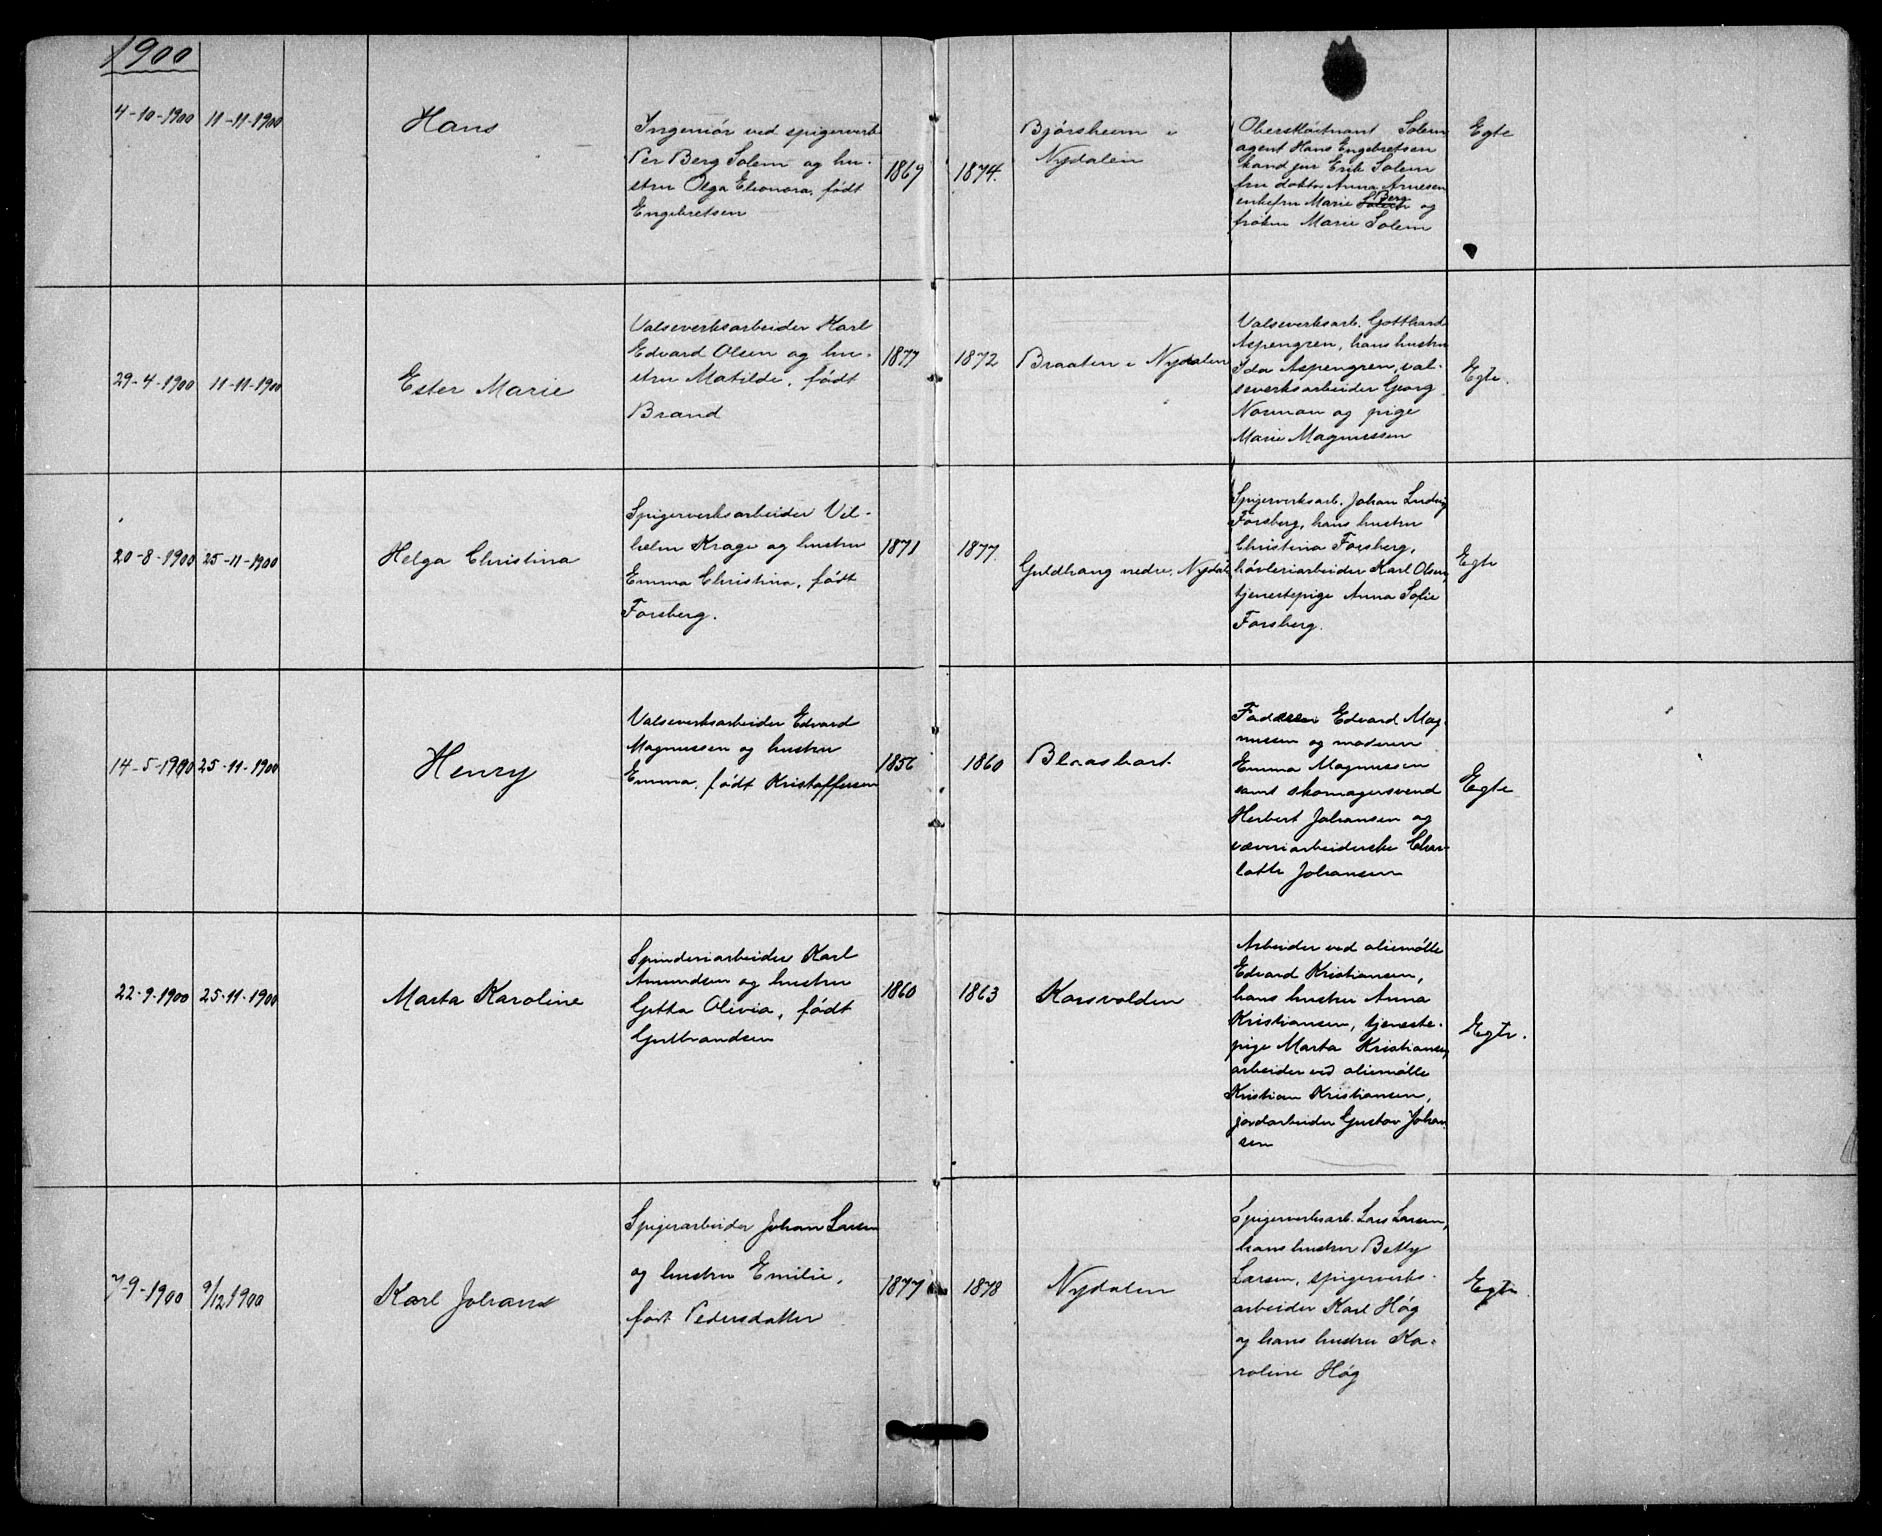 1900
4-10-1900
11-11-1900
Hans
Ingeniør ved spigerverk
Per Berg Solem og hu-
stru Olga Eleonora, født
Engebretsen
1869
1874.
Bjørsheim i
Nydalen
Oberstløitnant Solem
agent Hans Engebretsen
kand jur Erik Solem
fru doktor Anna Arnesen
enkefru Marie Berg og
frøken Marie Solem
Egte
29-4-1900
11-11-1900
Ester Marie
Valseverksarbeider Karl
Edvard Olsen og hu-
stru Matilde, født
Brand
1877
1872
Braaten i Nydalen
Valseverksarb. Gotthard
Aspengren, hans hustru
Ida Aspengren, val-
severksarbeider Georg
Norman og pige
Marie Magnussen
Egte.
20-8-1900
25-11-1900
Helga Christina
Spigerverksarbeider Vil-
helm Krage og hustru
Emma Christina, født
Forsberg.
1871
1877.
Guldhaug nedre, Nydal
Spigerverksarb. Johan Ludvig
Forsberg, hans hustru
Christina Forsberg,
høvleriarbeider Karl Olsen,
tjenestepige Anna Sofie
Forsberg.
Egte
14-5-1900
25-11-1900
Henry
Valseverksarbeider Edvard
Magnussen og hustru
Emma, født Kristoffersen
1856
1860
Blaasbort
Faderen Edvard Mag-
nussen og moderen
Emma Magnussen
samt skomagersvend
Herbert Johansen og
væveriarbeiderske Char-
lotte Johansen
Egte
22-9-1900
25-11-1900
Marta Karoline
Spinderiarbeider Karl
Amundsen og hustru
Gitta Olivia, født
Gulbrandsen
1860
1863
Korsvolden
Arbeider ved oliemølle
Edvard Kristiansen,
hans hustru Anna
Kristiansen, tjeneste-
pige Marta Kristiansen,
arbeider ved oliemølle
Kristian Kristiansen,
jordarbeider Gustav Johan
sen
Egte.
7-9-1900
9/12 1900
Karl Johan
Spigerarbeider Johan Larsen
og hustru Emilie,
født Pedersdatter
1877
1878
Nydalen
Spigerverksarb. Lars Larsen,
hans hustru Betty
Larsen, spigerverks-
arbeider Karl Høg
og hans hustru Ka-
roline Høg
Egte